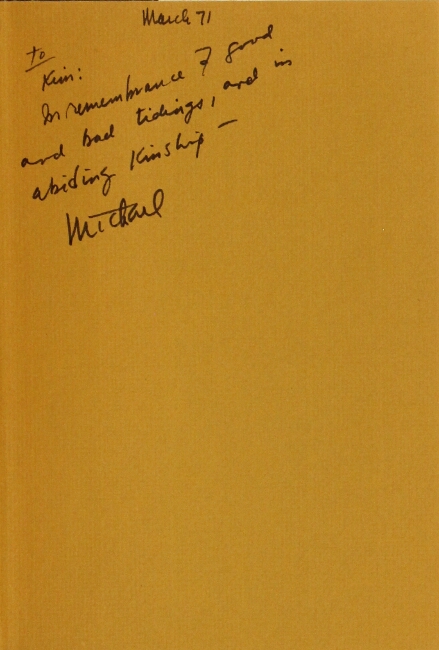 March 71
To
Kim:
In remembrance of good
and bad tidings, and in
abiding Kinship —
Michael